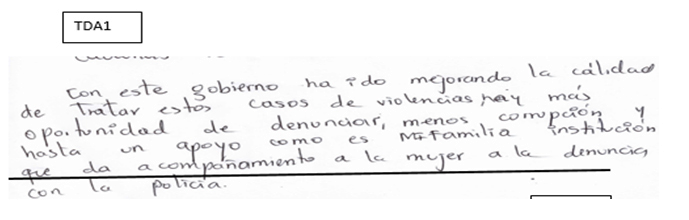 TDA1
con este gobierno ha ido mejorando la cálidad
de Tratar estos casos de violencias, hay más
oportunidad de denunciar, menos corrupción y
hasta un apoyo como es Mifamilia institución
que da acompañamiento a la mujer a la denuncia,
con la policia.